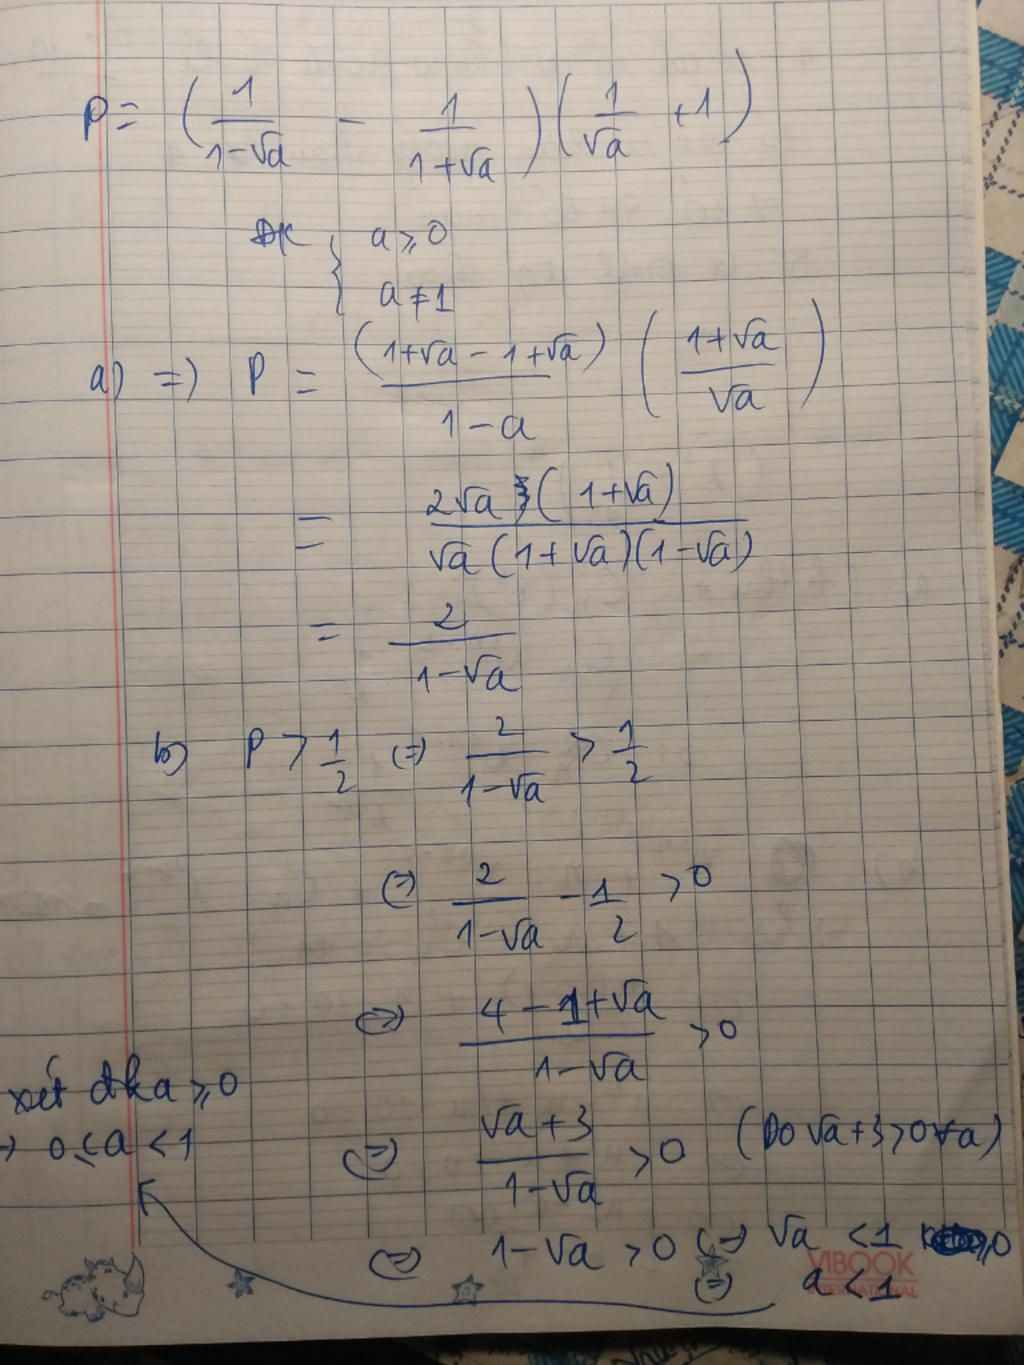 P = ( 1/(1-√a) - 1/(1+√a) ) ( 1/√a + 1 )
ĐK { a ≥ 0
a ≠ 1
a) => P = (1+√a - 1+√a)/(1-a) ( (1+√a)/√a )
= 2√a (1+√a) / √a(1+√a)(1-√a)
= 2/(1-√a)
b) P > 1/2 (=) 2/(1-√a) > 1/2
(=) 2/(1-√a) - 1/2 > 0
(=) (4-1+√a)/(1-√a) > 0
(=) (√a+3)/(1-√a) > 0 (Do √a+3>0 ∀a)
(=) 1-√a > 0 (=) √a < 1 ≥ 0
(=) a < 1
xét đk a ≥ 0
→ 0 ≤ a < 1
VIBOOK
INTERNATIONAL